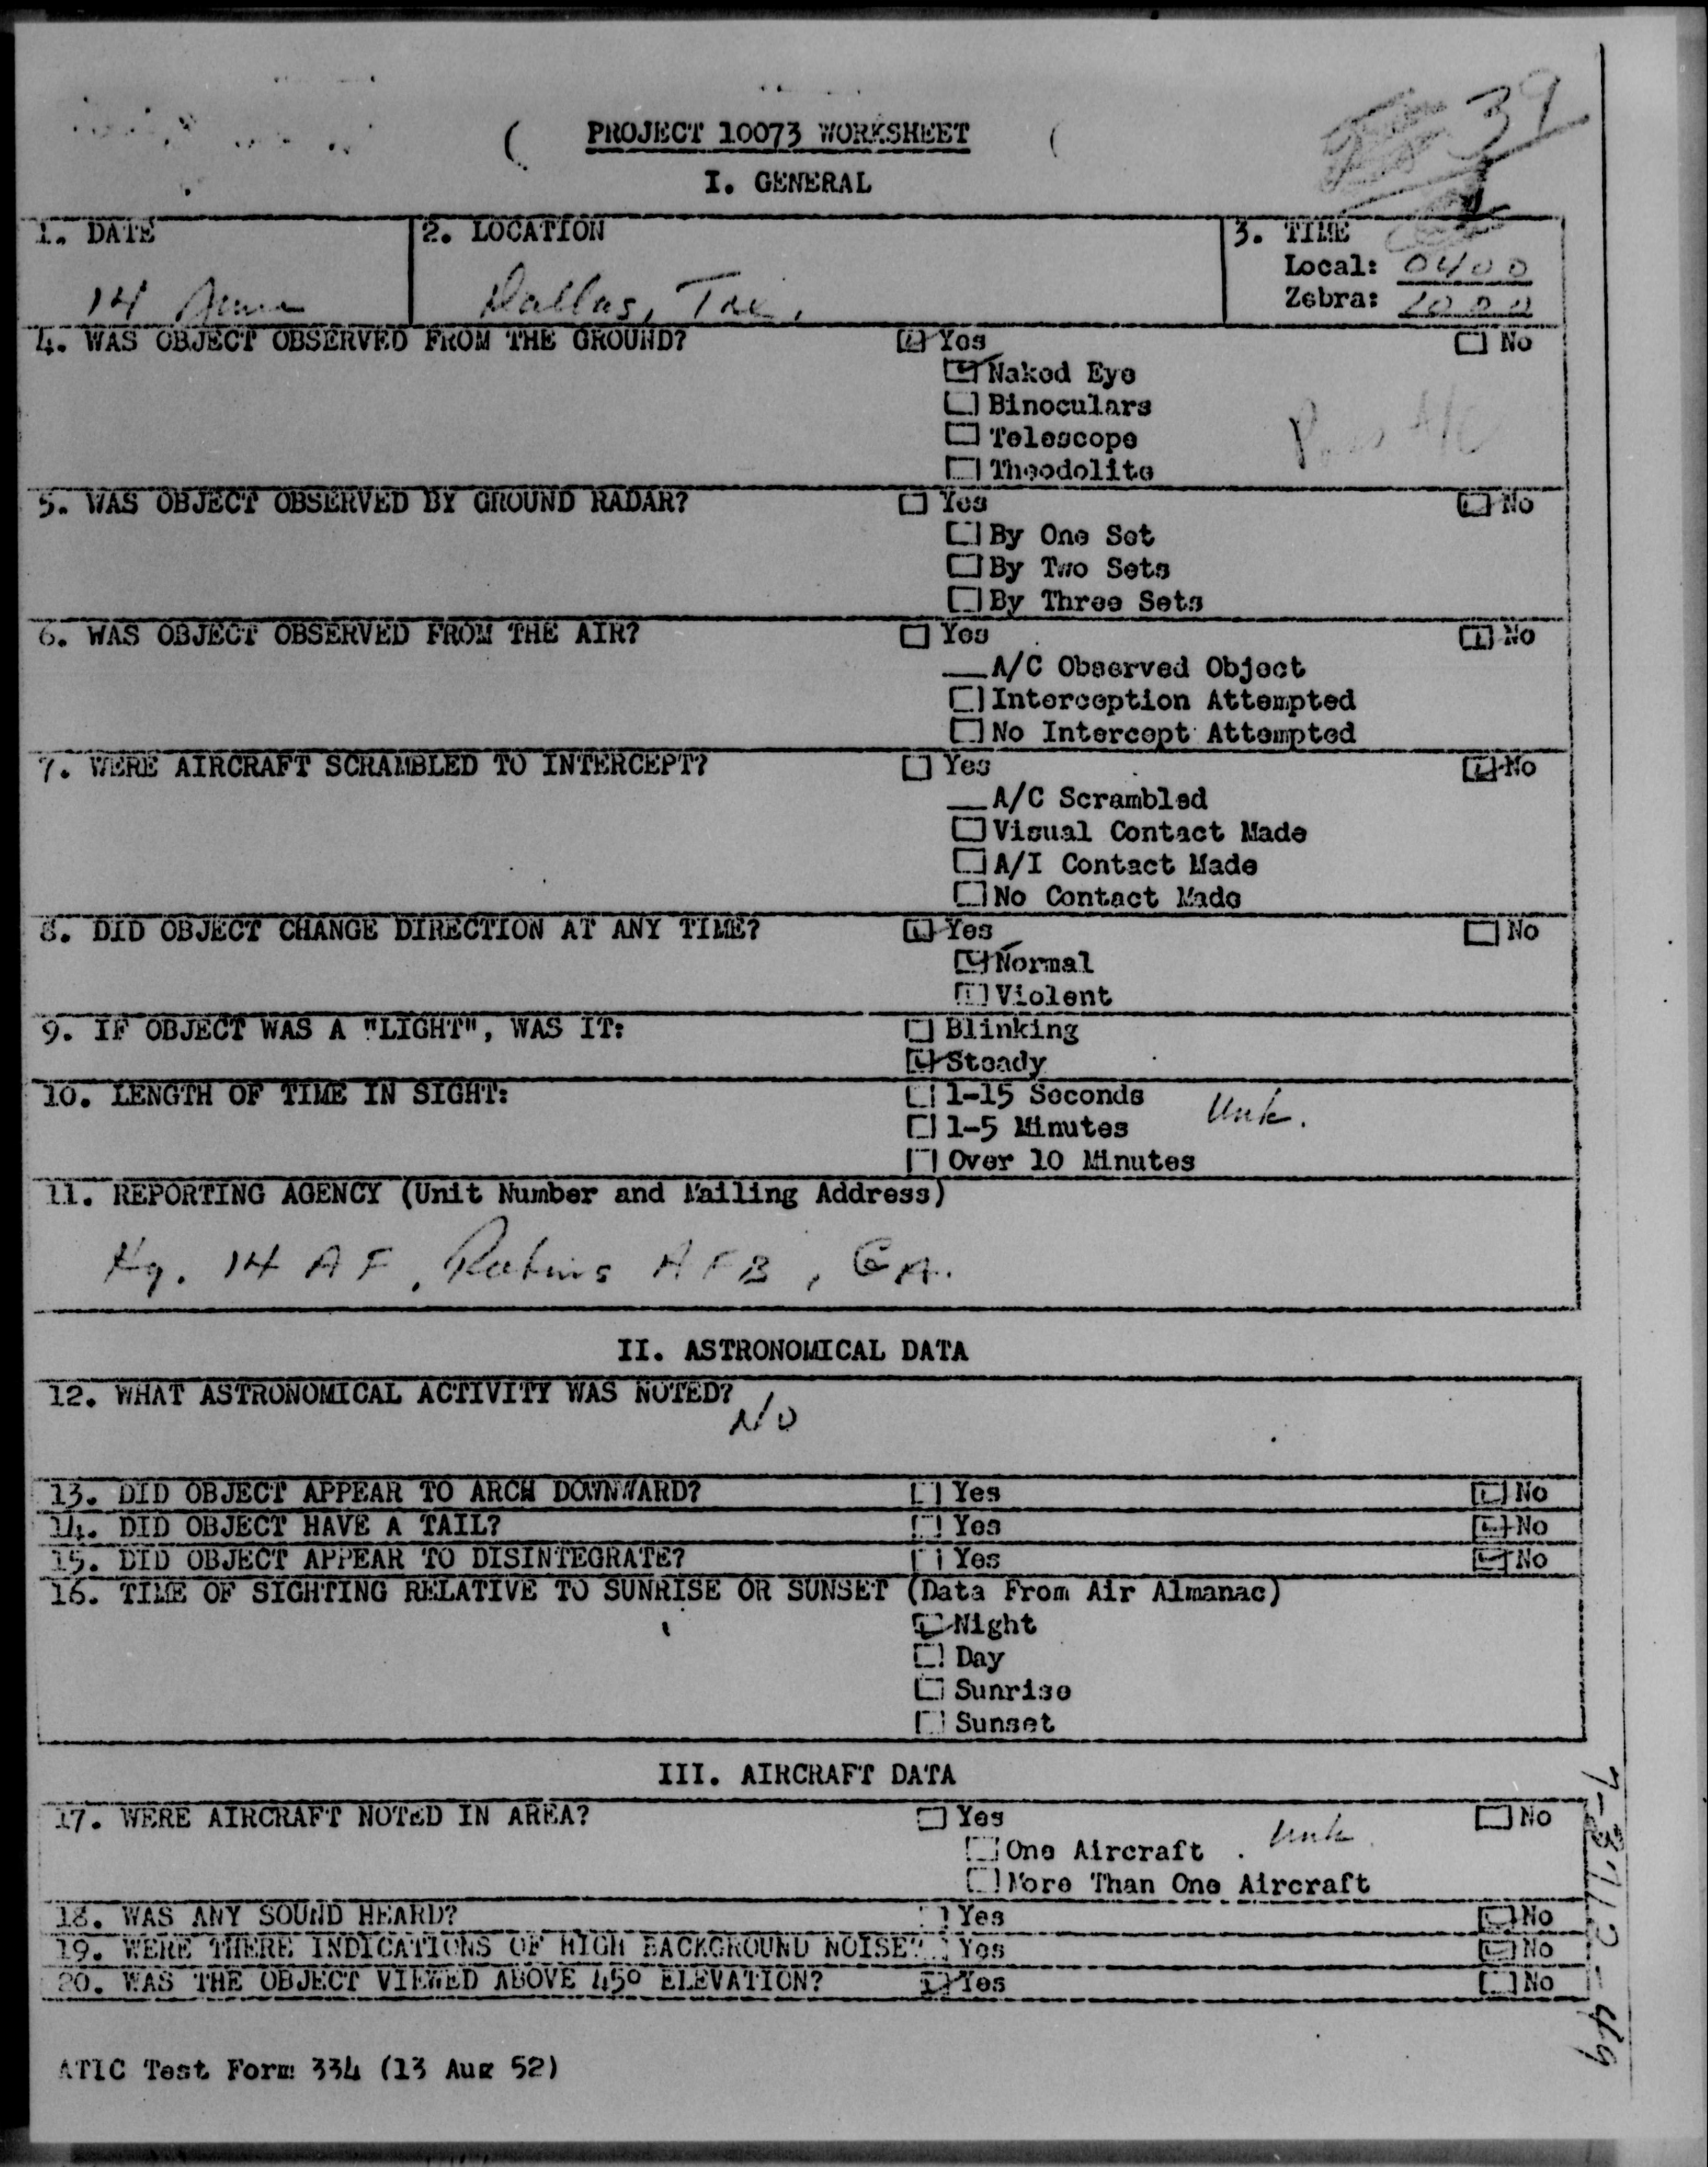 39
PROJECT 10073 WORKSHEET
I. GENERAL
1. DATE
14 June
2. LOCATION
Dallas, Tex.
3. TIME
Local: 0400
Zebra: 1000
4. WAS OBJECT OBSERVED FROM THE GROUND? Yes No
Naked Eye
Binoculars
Telescope
Theodolite
5. WAS OBJECT OBSERVED BY GROUND RADAR? Yes No
By One Set
By Two Sets
By Three Sets
6. WAS OBJECT OBSERVED FROM THE AIR? Yes No
A/C Observed Object
Interception Attempted
No Intercept Attempted
7. WERE AIRCRAFT SCRAMBLED TO INTERCEPT? Yes No
A/C Scrambled
Visual Contact Made
A/I Contact Made
No Contact Made
8. DID OBJECT CHANGE DIRECTION AT ANY TIME? Yes No
Normal
Violent
9. IF OBJECT WAS A "LIGHT", WAS IT: Blinking
Steady
10. LENGTH OF TIME IN SIGHT: 1-15 Seconds Unk.
1-5 Minutes
Over 10 Minutes
11. REPORTING AGENCY (Unit Number and Mailing Address)
Hq. 14 AF, Robins AFB, GA.
II. ASTRONOMICAL DATA
12. WHAT ASTRONOMICAL ACTIVITY WAS NOTED?
No
13. DID OBJECT APPEAR TO ARCH DOWNWARD? Yes No
14. DID OBJECT HAVE A TAIL? Yes No
15. DID OBJECT APPEAR TO DISINTEGRATE? Yes No
16. TIME OF SIGHTING RELATIVE TO SUNRISE OR SUNSET (Data From Air Almanac)
Night
Day
Sunrise
Sunset
III. AIRCRAFT DATA
17. WERE AIRCRAFT NOTED IN AREA? Yes Unk No
One Aircraft
More Than One Aircraft
18. WAS ANY SOUND HEARD? Yes No
19. WERE THERE INDICATIONS OF HIGH BACKGROUND NOISE? Yes No
20. WAS THE OBJECT VIEWED ABOVE 45° ELEVATION? Yes No
ATIC Test Form 334 (13 Aug 52)